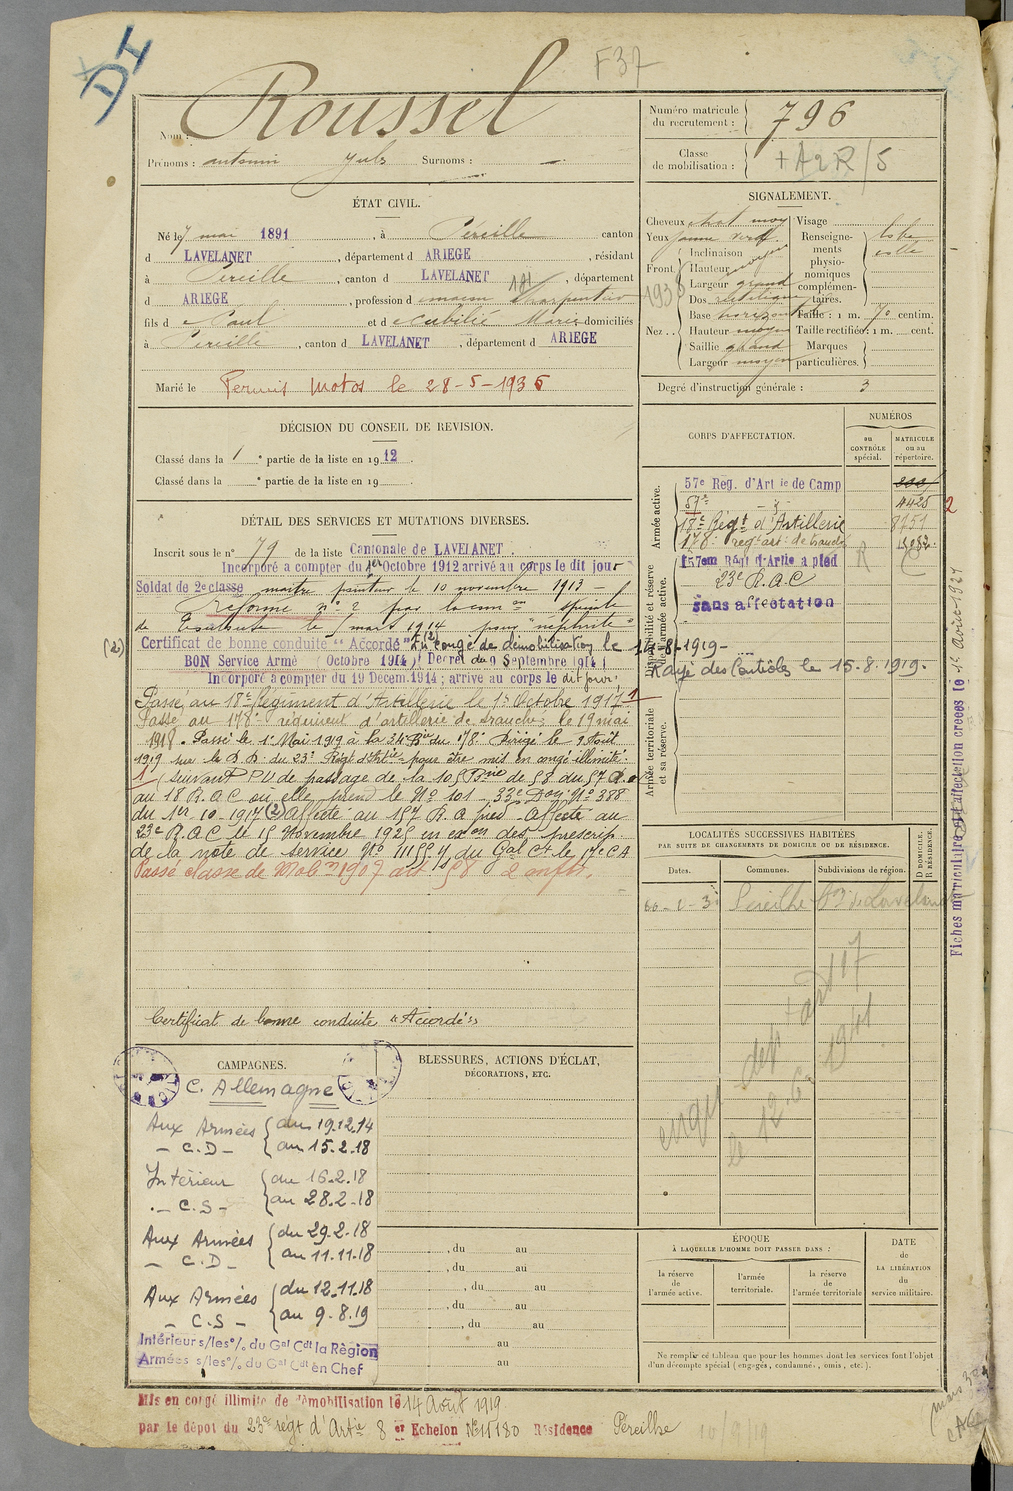 DI
F37
Nom : Roussel
Prénoms : antonin Jules Surnoms : —
Numéro matricule du recrutement : 796
Classe de mobilisation : + A 2 R/5
ÉTAT CIVIL.
Né le 7 mai 1891, à Péreille canton
d LAVELANET, département d ARIEGE, résidant
à Péreille, canton d LAVELANET, département
d ARIEGE, profession d Charpentier
fils d e Paul et d Marie domiciliés
à Péreille, canton d LAVELANET, département d ARIEGE
Marié le Permis Motos le 28-5-1936
SIGNALEMENT.
Cheveux chat moy
Yeux jaune verd.
Front Inclinaison
Hauteur moyen
Largeur grand
Nez Dos rectiligne
Base horizontale
Hauteur moyen
Saillie grand
Largeur moyen
Visage
Renseignements physionomiques complémentaires.
Taille : 1 m. 70 centim.
Taille rectifiée : 1 m. cent.
Marques particulières.
Degré d'instruction générale : 3
DÉCISION DU CONSEIL DE REVISION.
Classé dans la 1e partie de la liste en 1912.
Classé dans la e partie de la liste en 19
CORPS D'AFFECTATION.
NUMÉROS
au CONTRÔLE spécial.
MATRICULE ou au répertoire.
Armée active.
57e Reg. d'Artie de Camp
4425
2
18e Régt d'Artillerie 8751
178e reg. art. de tranchée
Disponibilité et réserve de l'armée active.
157em Régt d'Artie a pied
23e R.A.C
sans affectation
Rayé des Contrôles le 15.8.1919.
Armée territoriale et sa réserve.
DÉTAIL DES SERVICES ET MUTATIONS DIVERSES.
Inscrit sous le n° 79 de la liste Cantonale de LAVELANET.
Incorporé a compter du 1er Octobre 1912 arrivé au corps le dit jour
Soldat de 2e classe maitre pointeur le 10 novembre 1913 —
Réformé n° 2 par la comon spéciale
de Toulouse le mars 1914 pour "néphrite"
(2) Certificat de bonne conduite "Accordé" En congé de démobilisation le 14-8-1919-
BON Service Armé (Octobre 1914) (Decret du 9 Septembre 1914)
Incorporé a compter du 19 Decem.1914; arrive au corps le dit jour.
Passé au 18e Régiment d'Artillerie le 1er Octobre 1917 1
Passé au 178e régiment d'artillerie de tranchée; le 19 mai
1918. Passé le 1er Mai 1919 à la 34e Bie du 178e Dirigé le 9 Août
1919 sur le D D du 23e Régt d'Artie pour être mis en congé illimité.
1 (Suivant P.V de passage de la 105 Bie de 58 du 57 R.a
au 18 R.A.C où elle prend le N° 101 - 33e Don N° 388
du 1er 10-1917 (2) Affecté au 157 R.A pied - Affecté au
23e R.A.C le 15 Novembre 1925 en exon des prescrip
de la note de service N° 11155 Y du Gal Ct le 17e C A
Passé classe de Mobon 1907 art 58 2 enfts.
Certificat de bonne conduite "Accordé"
LOCALITÉS SUCCESSIVES HABITÉES
PAR SUITE DE CHANGEMENTS DE DOMICILE OU DE RÉSIDENCE.
Dates. Communes. Subdivisions de région. D DOMICILE. R RÉSIDENCE.
Péreilhe de Lavelanet
le 12.6.1941
Fiches matriculaire et d'affectation creees le 1er Août 1927
CAMPAGNES.
C. Allemagne
Aux Armées — C.D — du 19.12.14 au 15.2.18
Intérieur — C.S — du 16.2.18 au 28.2.18
Aux Armées — C.D — du 29.2.18 au 11.11.18
Aux Armées — C.S — du 12.11.18 au 9.8.19
Intérieur s/les°/₀ du Gal Cdt la Règion
Armées s/les°/₀ du Gal Cdt en Chef
BLESSURES, ACTIONS D'ÉCLAT,
DÉCORATIONS, ETC.
, du au
, du au
, du au
, du au
, du au
au
au
ÉPOQUE
À LAQUELLE L'HOMME DOIT PASSER DANS :
la réserve de l'armée active.
l'armée territoriale.
la réserve de l'armée territoriale
DATE de LA LIBÉRATION du service militaire.
Ne remplir ce tableau que pour les hommes dont les services font l'objet
d'un décompte spécial (engagés, condamnés, omis, etc.).
Mis en congé illimité de démobilisation le 14 Août 1919
par le dépot du 23e regt d'Artie 8 er Echelon N° 15180 Résidence Péreilhe
10/9/19